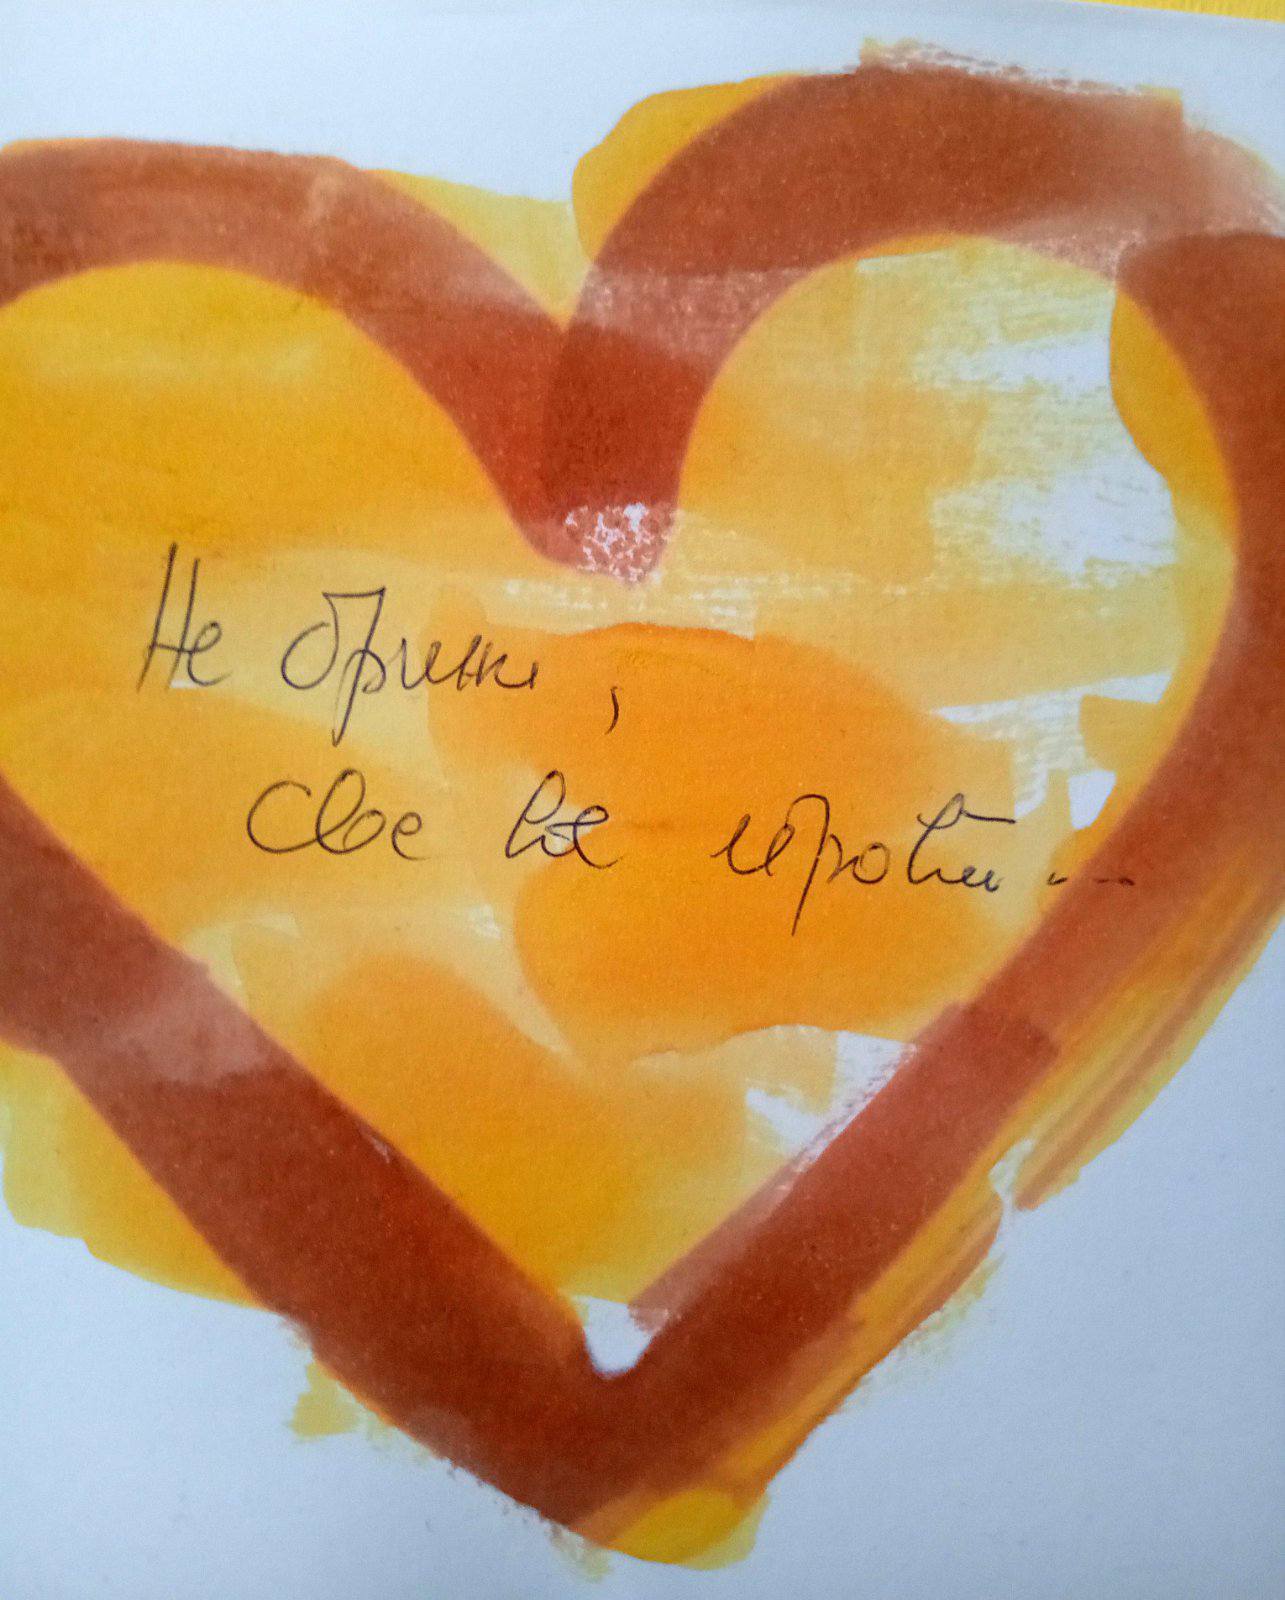 Не брини,
све ће проћи...